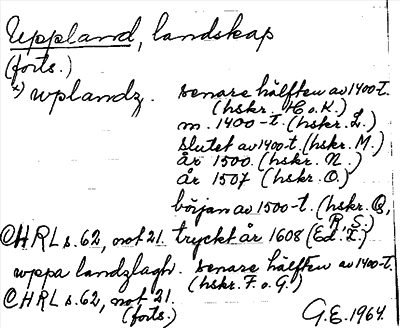 Uppland, landskap
(forts.)
x) wplandz. senare hälften av 1400-t.
(hskr. H o. K.)
m. 1400-t. (hskr. L.)
slutet av 1400-t. (hskr. M.)
år 1500. (hskr. N.)
år 1507 (hskr. O.)
början av 1500-t. (hskr. Q,
R, S.)
CHRL s. 62, not 21. tryckt år 1608 (Ed. I.)
wppa landzlagh. senare hälften av 1400-t.
(hskr. F. o G.)
CHRL s. 62, not 21.
(forts.)
G.E. 1964.